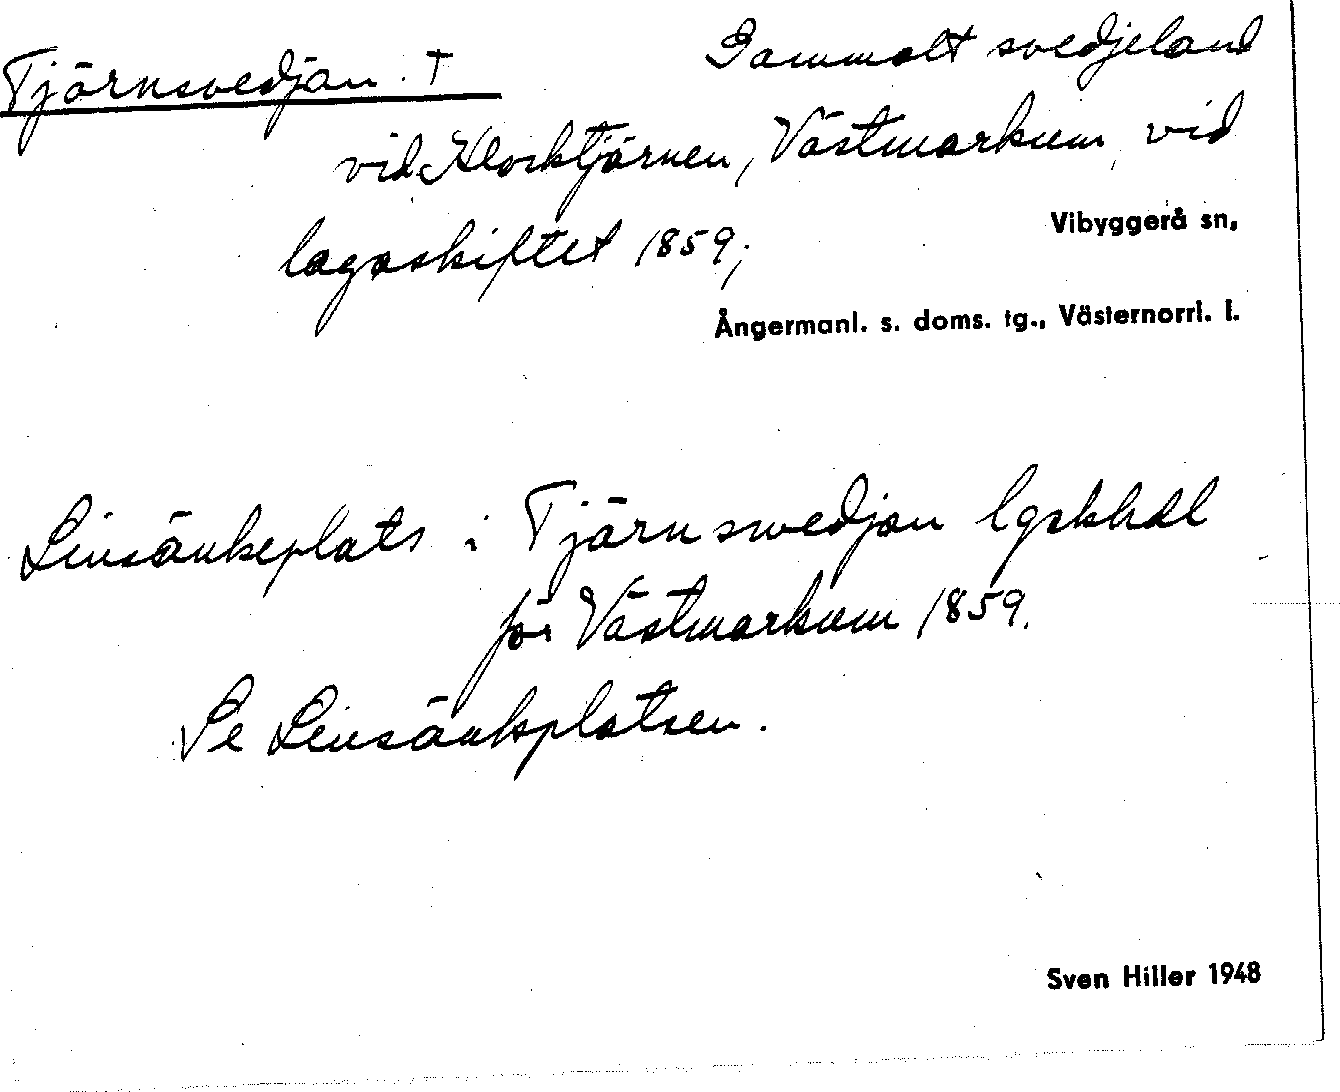 Tjärnsvedjan. † Gammalt svedjeland
vid Klocktjärnen, Västmarkum, vid
Vibyggerå sn,
lagaskiftet 1859;
Ångermanl. s. doms. tg., Västernorrl. l.
Linsänkeplats i Tjärnsvedjan lgskhdl
för Västmarkum 1859.
Se Linsänkplatsen.
Sven Hiller 1948